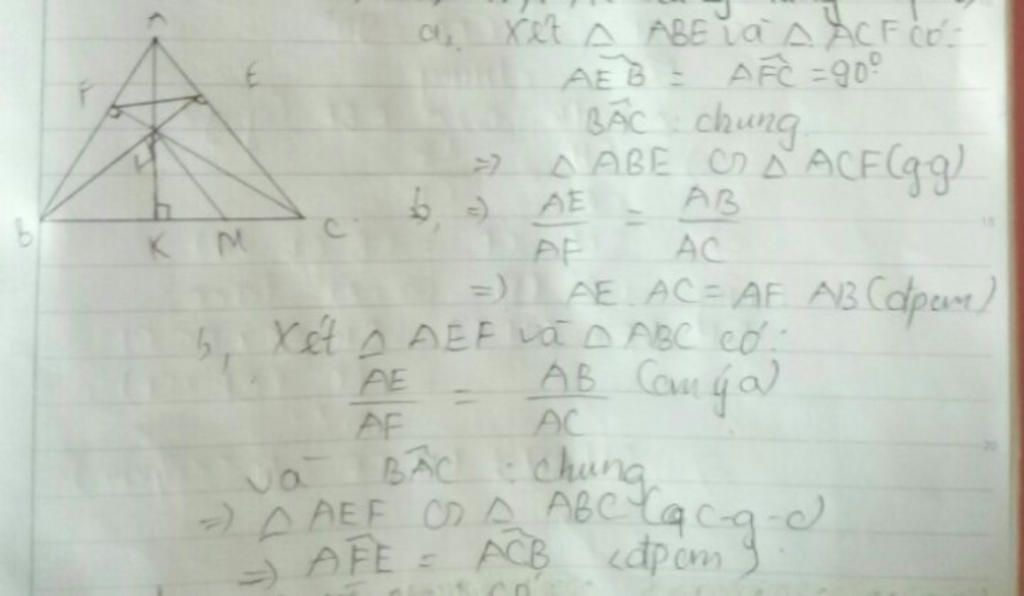 a, Xét △ ABE và △ ACF có:
A
F
E
H
B
K
M
C
AEB̂ = AFĈ = 90°
BÂC : chung
=> △ ABE ∽ △ ACF (gg)
b, => AE/AF = AB/AC
=> AE AC = AF AB (đpcm)
b, Xét △ AEF và △ ABC có:
AE/AF = AB/AC (cm ý a)
và BÂC : chung
=> △ AEF ∽ △ ABC (c-g-c)
=> AF̂E = AĈB (đpcm)